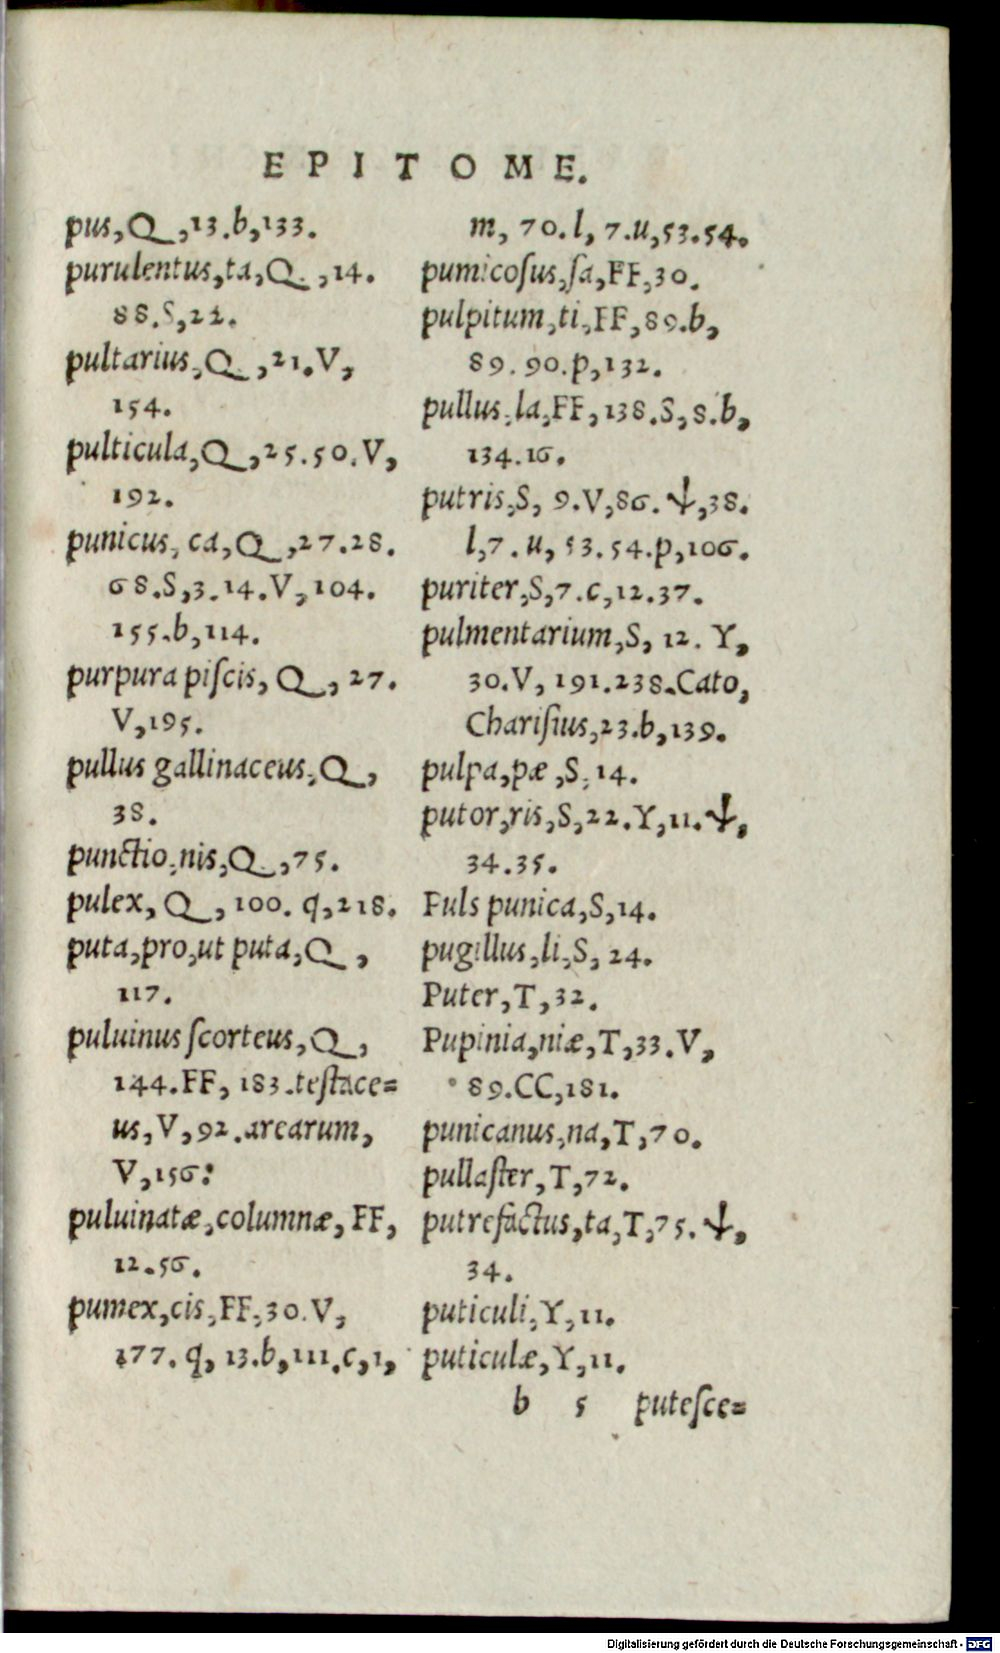 EPITOME.
pus, Q, 13. b, 133.
purulentus, ta, Q, 14.
88. S, 22.
pultarius, Q, 21. V,
154.
pulticula, Q, 25. 50. V,
192.
punicus, ca, Q, 27. 28.
68. S, 3. 14. V, 104.
155. b, 114.
purpura piſcis, Q, 27.
V, 195.
pullus gallinaceus, Q,
38.
punctio, nis, Q, 75.
pulex, Q, 100. q, 218.
puta, pro, ut puta, Q,
117.
puluinus ſcorteus, Q,
144. FF, 183. teſtace=
us, V, 92. arearum,
V, 156:
puluinatæ, columnæ, FF,
12. 56.
pumex, cis, FF, 30. V,
177. q, 13. b, 111. c, 1,
m, 70. l, 7. u, 53. 54.
pumicoſus, ſa, FF, 30.
pulpitum, ti, FF, 89. b,
89. 90. p, 132.
pullus, la, FF, 138. S, 8. b,
134. 16.
putris, S, 9. V, 86. ↓, 38.
l, 7. u, 53. 54. p, 106.
puriter, S, 7. c, 12. 37.
pulmentarium, S, 12. Y,
30. V, 191. 238. Cato,
Chariſius, 23. b, 139.
pulpa, pæ, S, 14.
putor, ris, S, 22. Y, 11. ↓,
34. 35.
Puls punica, S, 14.
pugillus, li, S, 24.
Puter, T, 32.
Pupinia, niæ, T, 33. V,
89. CC, 181.
punicanus, na, T, 70.
pullaſter, T, 72.
putrefactus, ta, T, 75. ↓,
34.
puticuli, Y, 11.
puticulæ, Y, 11.
b 5 puteſce=
Digitalisierung gefördert durch die Deutsche Forschungsgemeinschaft - DFG